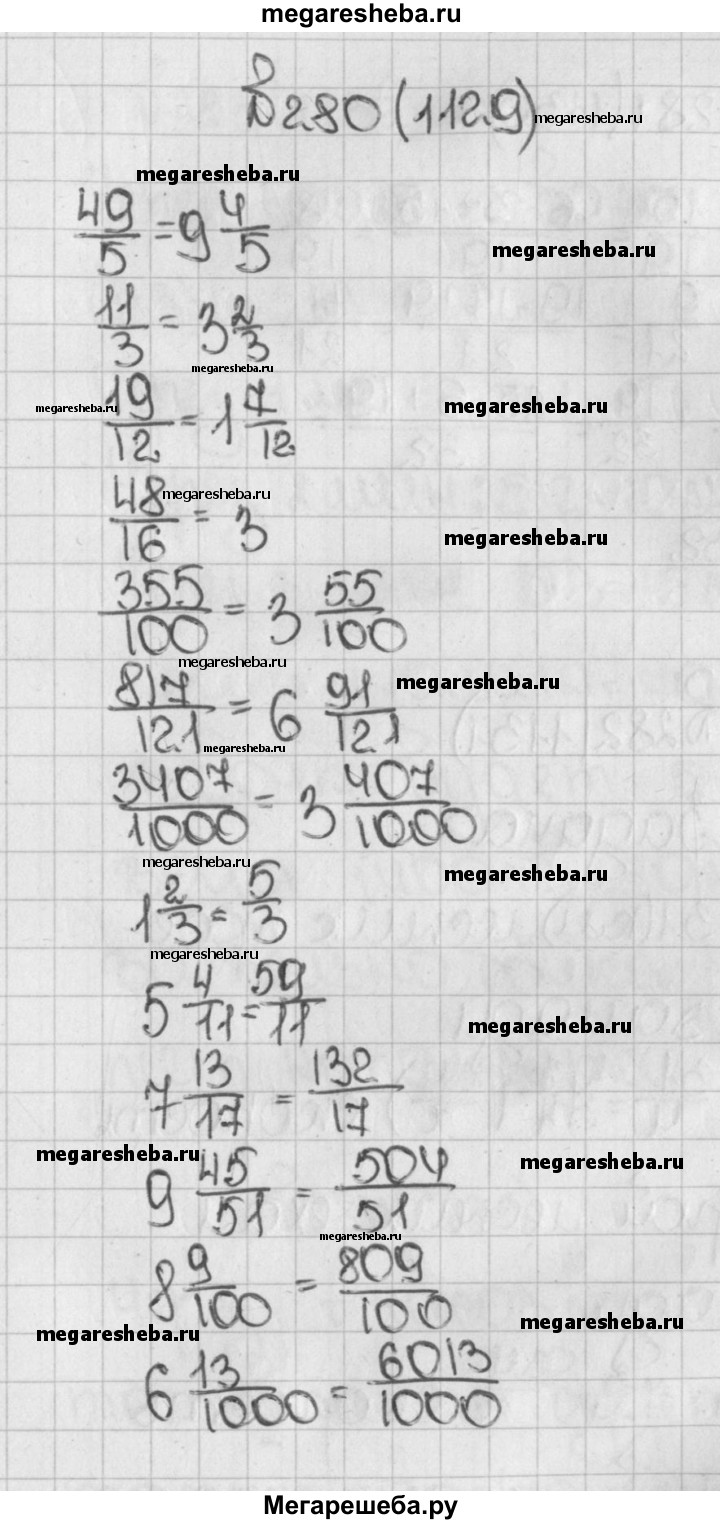 megaresheba.ru
D280 (1129) megaresheba.ru
megaresheba.ru
49/5 = 9 4/5
megaresheba.ru
11/3 = 3 2/3
megaresheba.ru
megaresheba.ru 19/12 = 1 7/12 megaresheba.ru
48/16 = 3 megaresheba.ru
megaresheba.ru
355/100 = 3 55/100
megaresheba.ru
817/121 = 6 91/121 megaresheba.ru
megaresheba.ru
3407/1000 = 3 407/1000
megaresheba.ru
1 2/3 = 5/3 megaresheba.ru
megaresheba.ru
5 4/11 = 59/11
megaresheba.ru
7 13/17 = 132/17
megaresheba.ru
9 45/51 = 504/51 megaresheba.ru
megaresheba.ru
8 9/100 = 809/100
megaresheba.ru megaresheba.ru
6 13/1000 = 6013/1000
Мегарешеба.ру